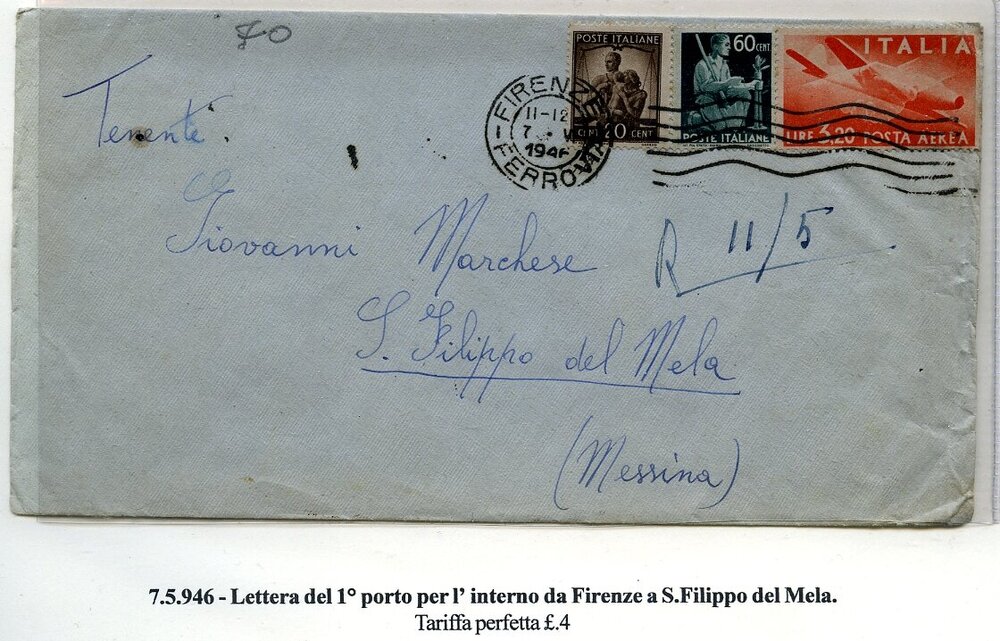 70
POSTE ITALIANE
CENT 20 CENT
60 CENT
POSTE ITALIANE
ITALIA
LIRE 3,20 POSTA AEREA
FIRENZE
11-12
7 V
1946
FERROVIA
Tenente
Giovanni Marchese
R 11/5
S. Filippo del Mela
(Messina)
7.5.946 - Lettera del 1° porto per l' interno da Firenze a S.Filippo del Mela.
Tariffa perfetta £.4